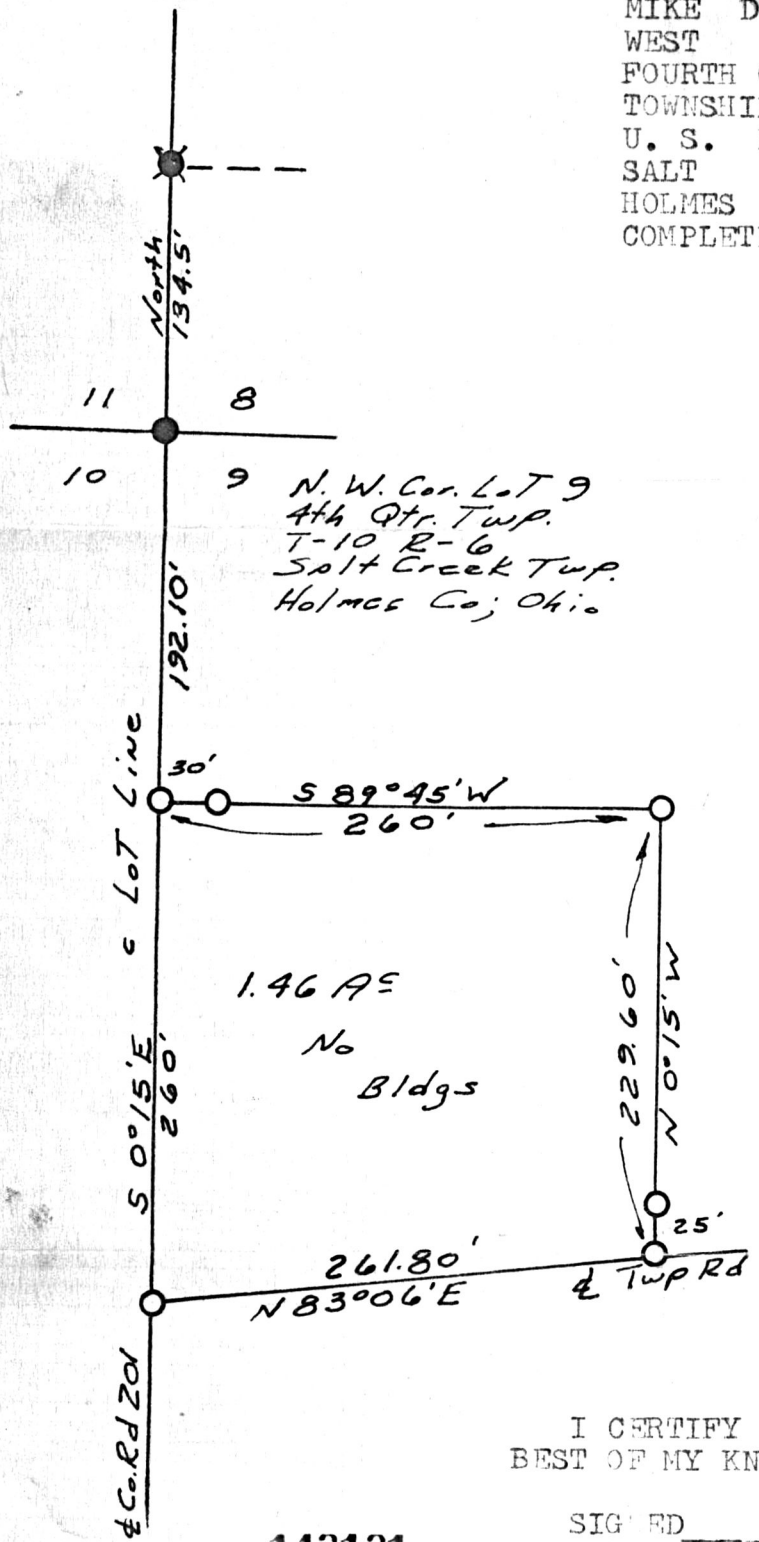 MIKE D
WEST
FOURTH
TOWNSHI
U. S.
SALT
HOLMES
COMPLET
North
134.5'
11 8
10 9
N. W. Cor. LoT 9
4th Qtr. Twp.
T-10 R-6
Salt Creek Twp.
Holmes Co; Ohio
192.10'
30'
S 89°45'W
260'
LoT Line
S 0°15'E
260'
1.46 Ac
No
Bldgs
229.60'
N 0°15'W
25'
261.80'
N 83°06'E
℄ Twp Rd
℄ Co. Rd 201
I CERTIFY
BEST OF MY KN
SIG ED